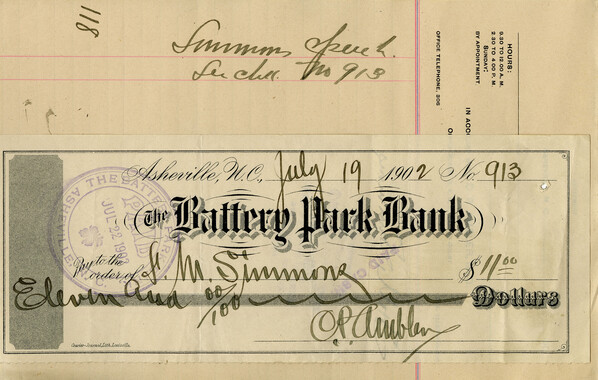 811
Simmons
See chk. No 913
HOURS:
9.30 TO 12.00 A. M.
2.30 TO 4.00 P. M.
SUNDAY:
BY APPOINTMENT
OFFICE TELEPHONE, 206
IN ACCO
Asheville, N.C., July 19 1902 No. 913
The Battery Park Bank
Pay to the
order of S. M. Simmons $11.00
Eleven and 00/100 Dollars
THE BATTERY
ASHEVILLE
PAID